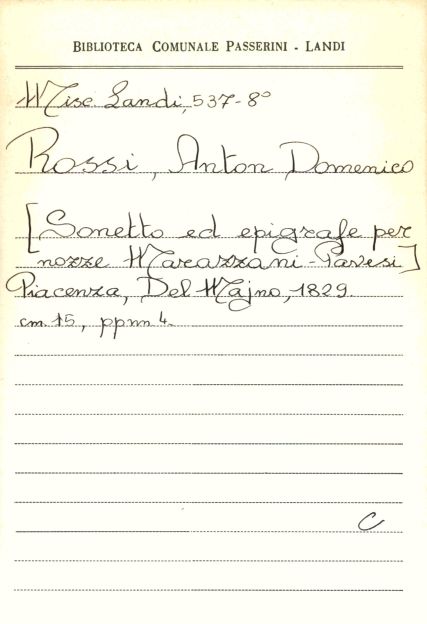 BIBLIOTECA COMUNALE PASSERINI - LANDI
Misc. Landi, 537-8°
Rossi, Anton Domenico
[Sonetto ed epigrafe per
nozze Marazzani-Pavesi]
Piacenza, Del Majno, 1829.
cm. 15, ppnn 4.
C